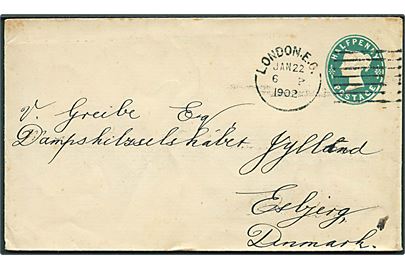 HALFPENNY
POSTAGE
LONDON. E.C.
JAN 22
6 P
1902
V. Greibe Eq,
Dampskibsselskabet Jylland
Esbjerg,
Denmark.